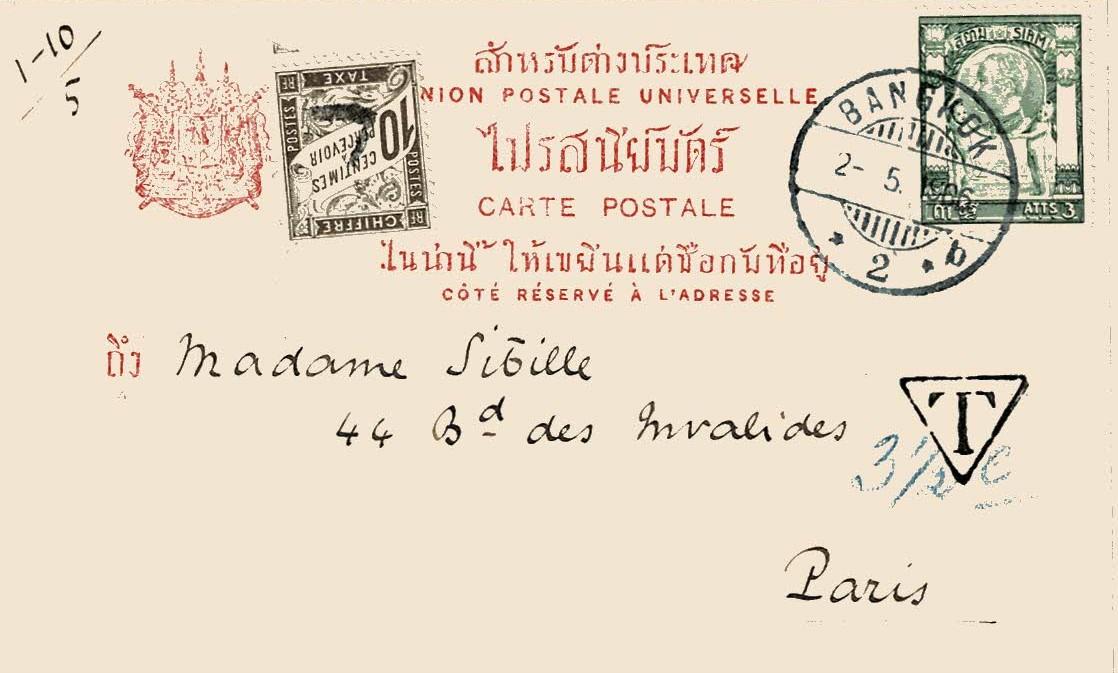 1-10
5
สำหรับต่างประเทศ
UNION POSTALE UNIVERSELLE
ไปรสนียบัตร์
CARTE POSTALE
ในน่านี้ ให้เขยีนแต่ชื่อกับที่อยู่
CÔTÉ RÉSERVÉ À L'ADRESSE
POSTES
TAXE
RF
10
CENTIMES
À
PERCEVOIR
POSTES
CHIFFRE
RF
สยาม SIAM
ATTS 3
BANGKOK
2- 5. 1906
2 b
ถึง Madame Sibille
44 Bd des Invalides
T
3 1/2 c
Paris